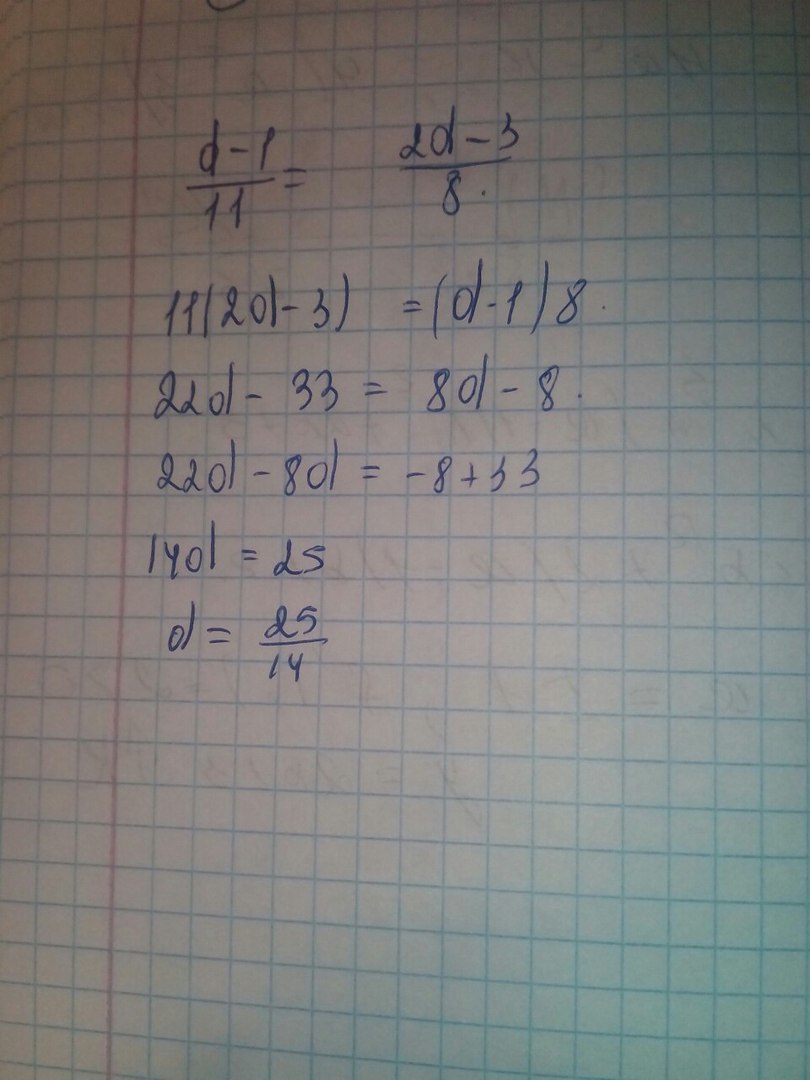 d-1/11 = 2d-3/8.
11(2d-3) =(d-1)8.
22d- 33 = 8d-8.
22d-8d = -8+33
14d = 25
d = 25/14